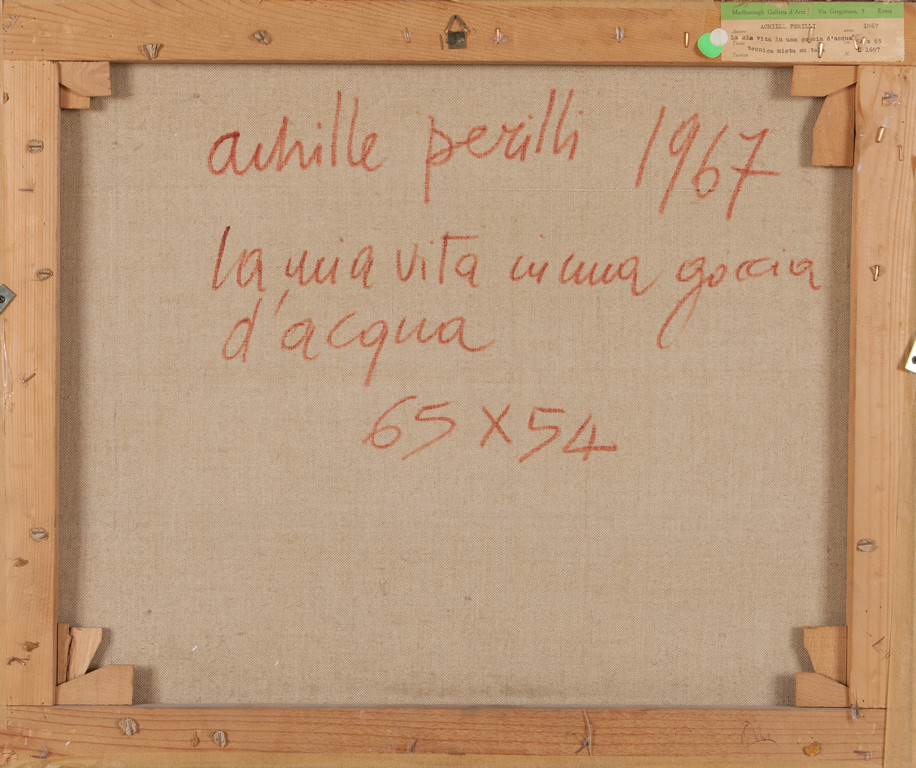 Marlborough Galleria d'Arte Via Gregoriana, 5 Roma
ACHILLE PERILLI 1967
La mia vita in una goccia d'acqua x 65
tecnica mista su 1697
achille perilli 1967
la mia vita in una goccia
d'acqua
65 x 54